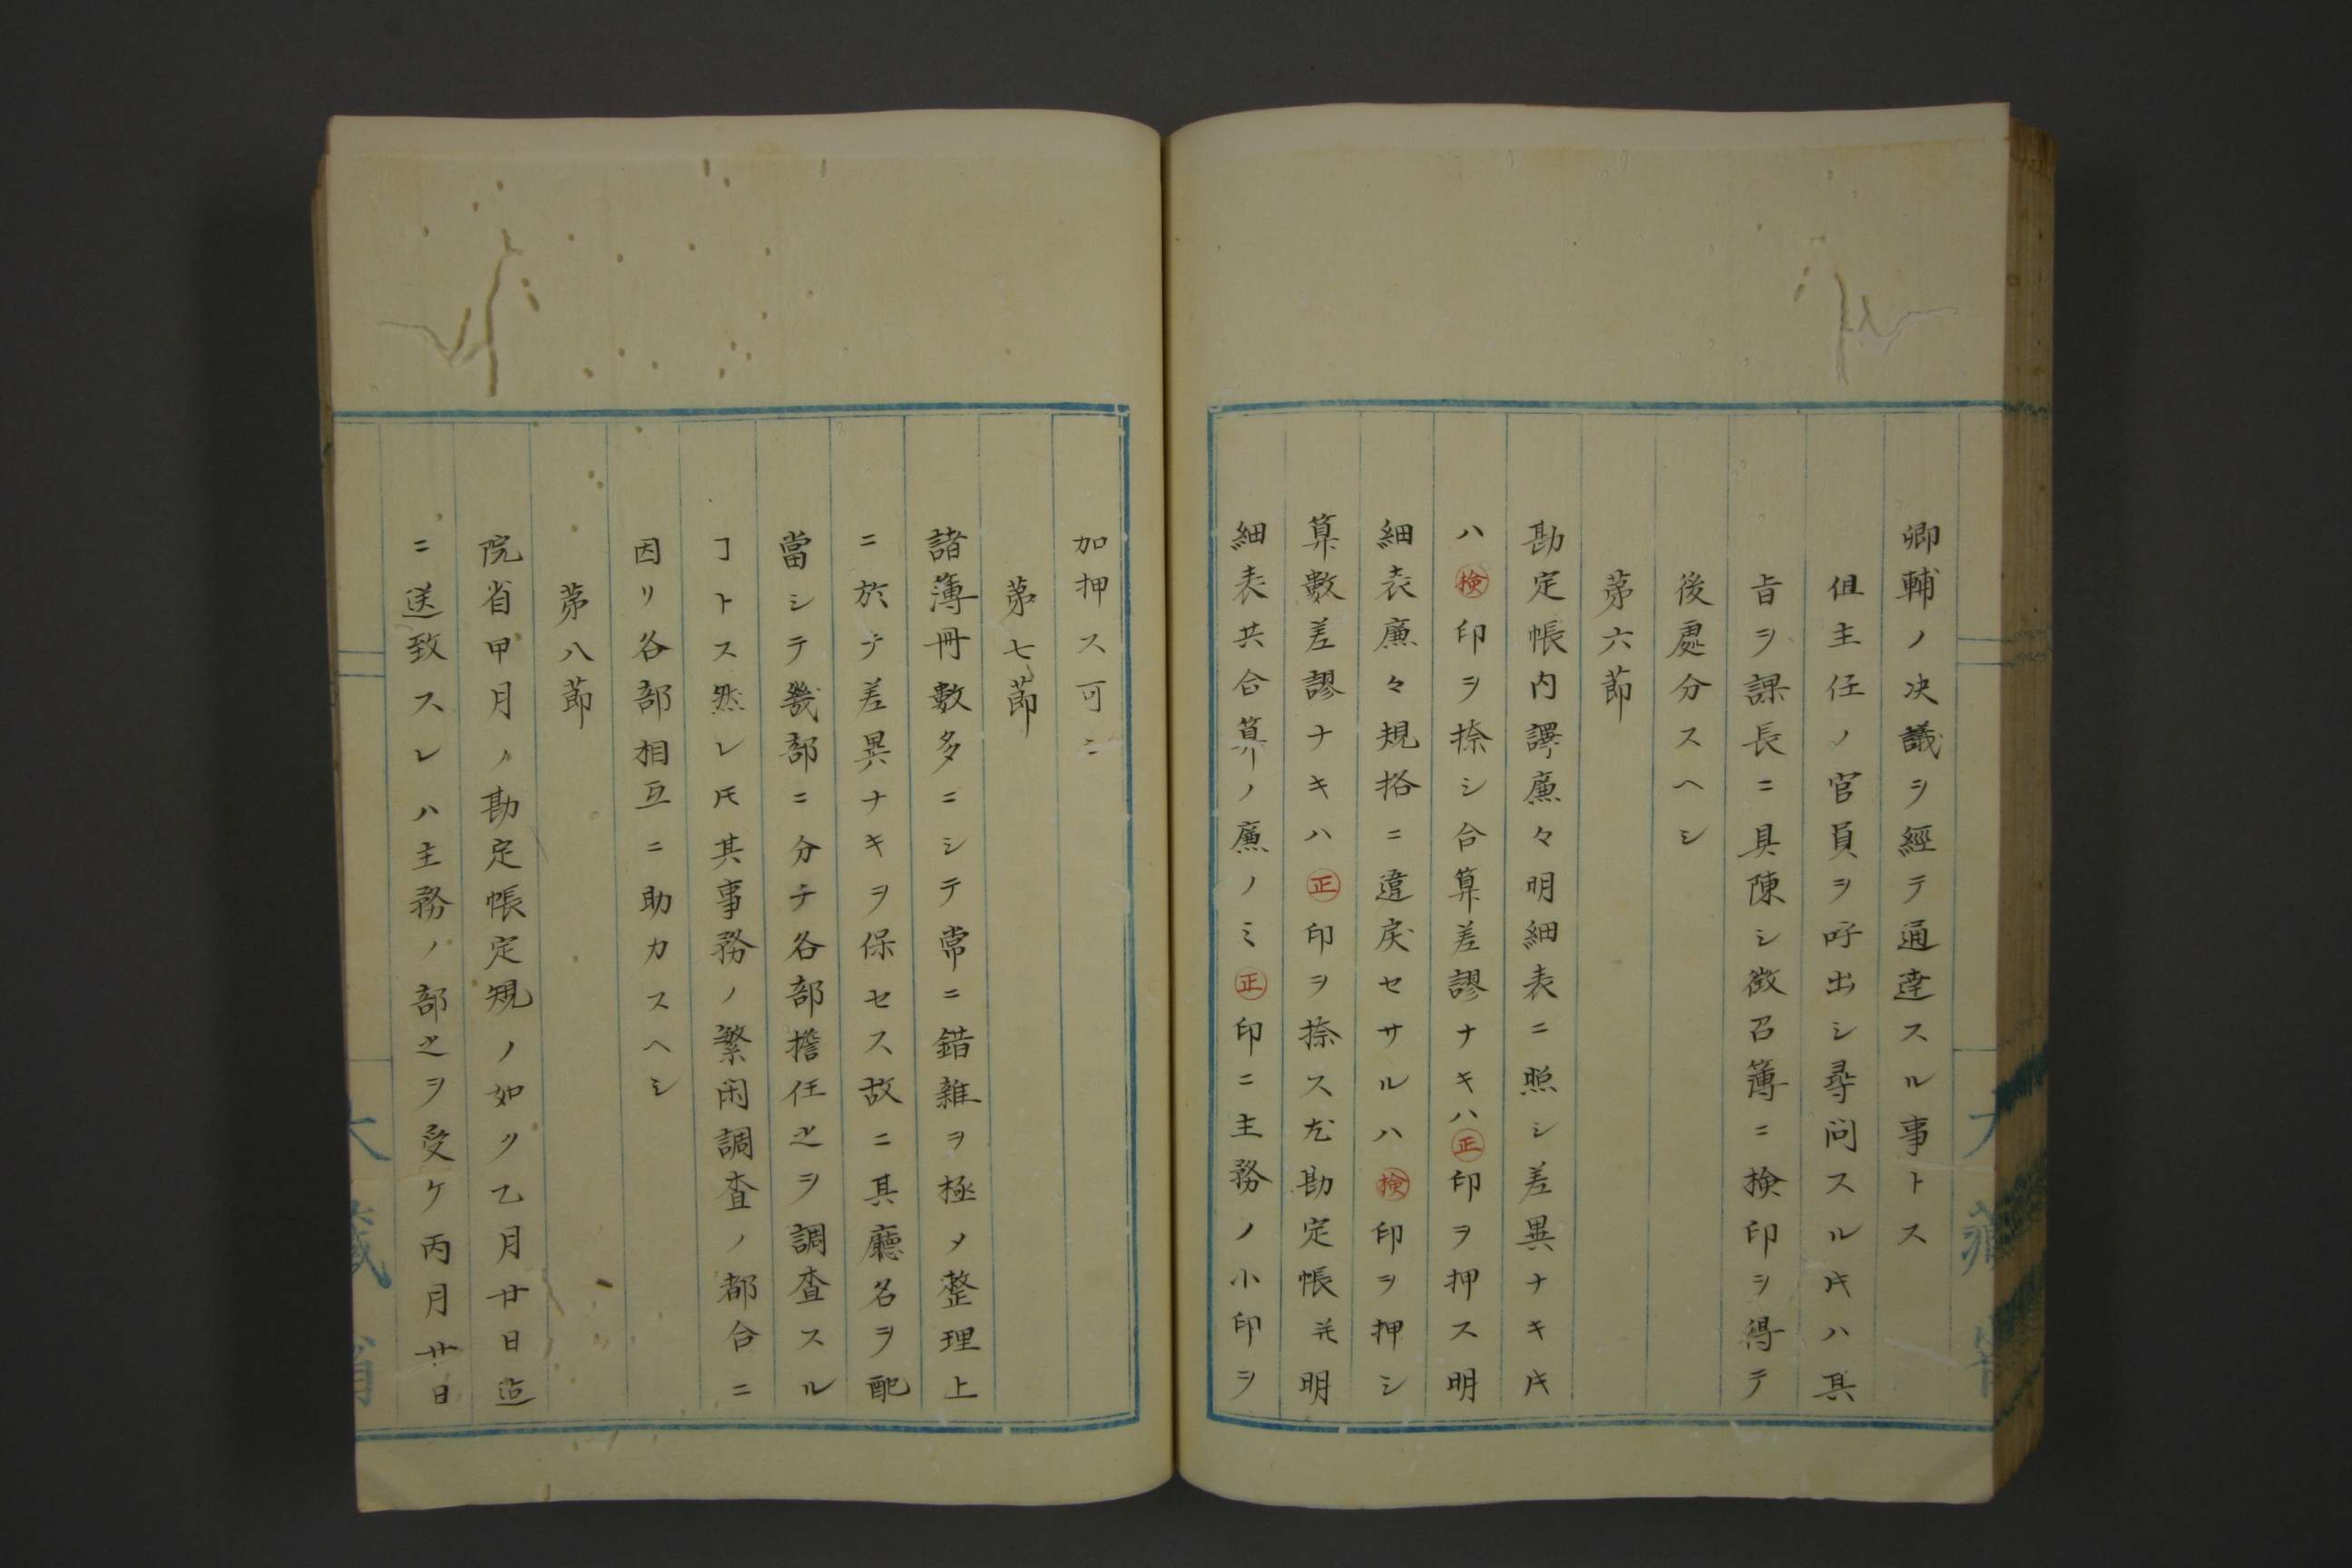 卿輔ノ决議ヲ經テ通達スル事トス
但主任ノ官員ヲ呼出シ尋問スル𪜈ハ其
旨ヲ課長ニ具陳シ徴召簿ニ検印ヲ得テ
後處分スヘシ
第六節
勘定帳内譯廉々明細表ニ照シ差異ナキ片
ハ検印ヲ捺シ合算差謬ナキハ正印ヲ押ス明
細表廉々規格ニ違戻セサルハ検印ヲ押シ
算數差謬ナキハ正印ヲ捺ス尤勘定帳并明
細表共合算ノ廉ノミ正印ニ主務ノ小印ヲ
加押ス可シ
第七節
諸薄冊數多ニシテ常ニ錯雜ヲ極メ整理上
ニ於テ差異ナキヲ保セス故ニ其廳名ヲ配
當シテ幾部ニ分チ各部擔任之ヲ調査スル
ヿトス然レ𪜈其事務ノ繁閑調査ノ都合ニ
因リ各部相互ニ助力スヘシ
第八節
院省甲月ノ勘定帳定規ノ如ク乙月廿日迄
ニ送致スレハ主務ノ部之ヲ受ケ丙月廿日
大藏省